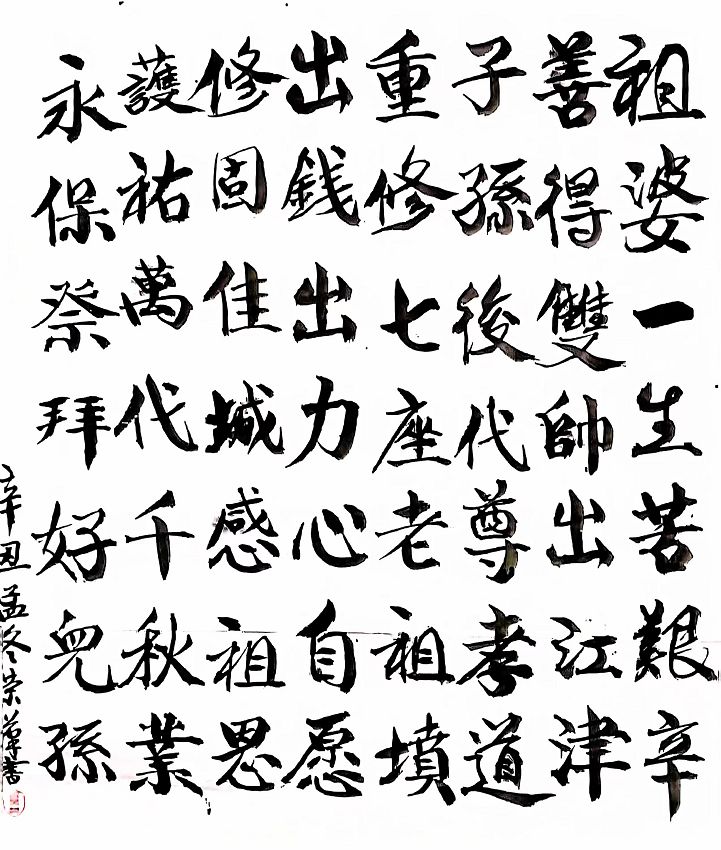 祖婆一生苦艱辛
善得雙帥出江津
子孫後代尊孝道
重修七座老祖墳
出錢出力心自愿
修固佳城感祖恩
護祐萬代千秋業
永保祭拜好兒孫
辛丑孟冬宗尊書